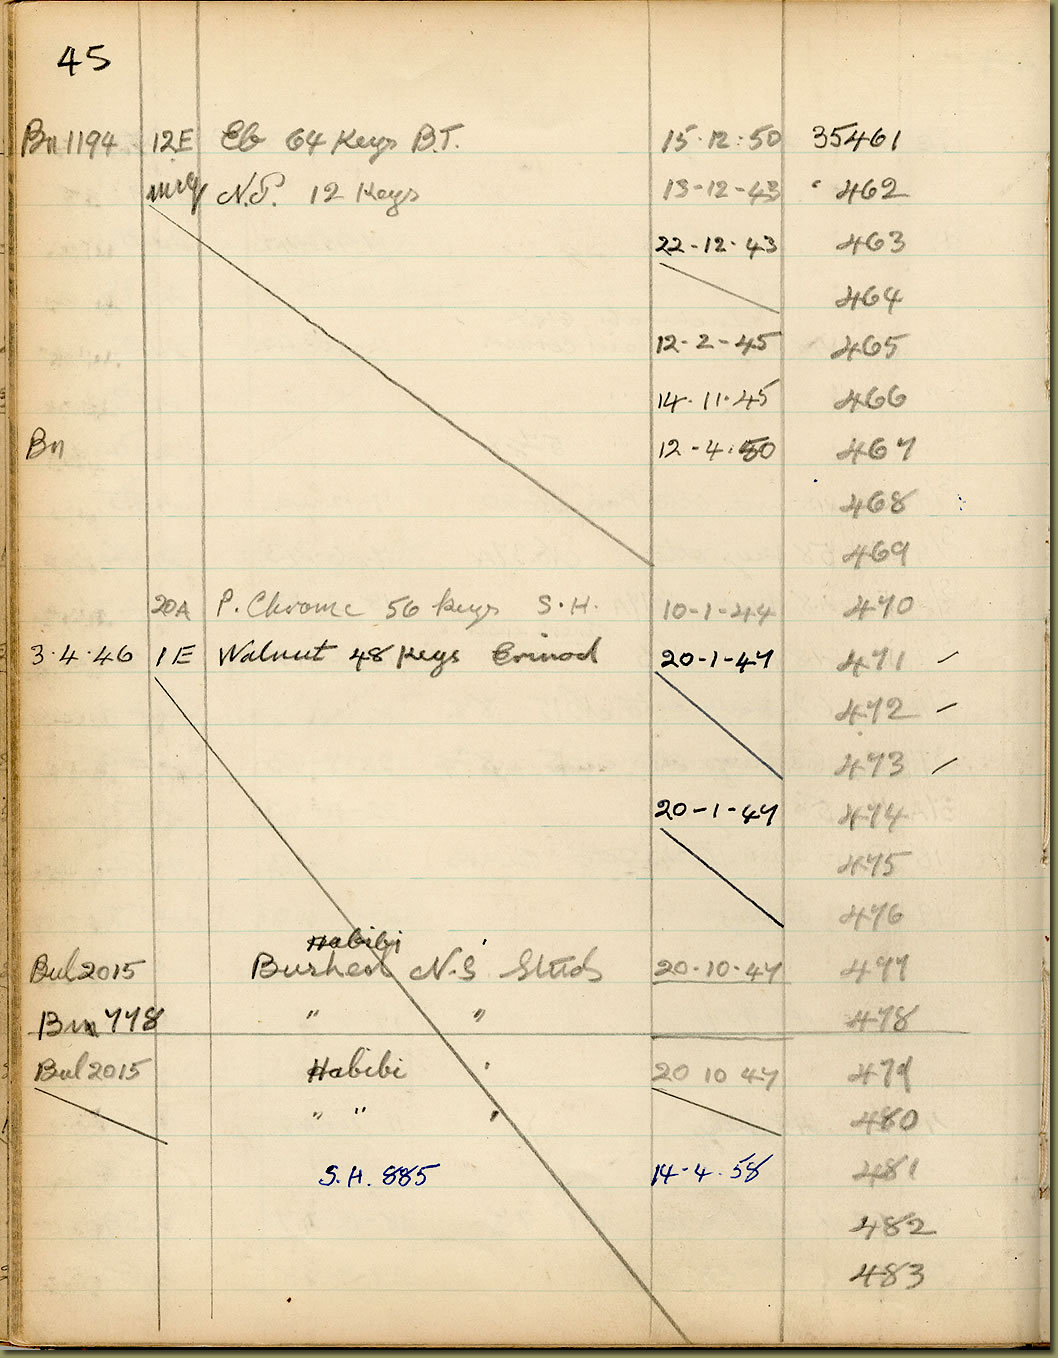 45
Bn 1194 12E Eb 64 Keys B.T. 15.12.50 35461
N.P. 12 Keys 13-12-43 462
22-12.43 463
464
12-2-45 465
14.11.45 466
Bn 12-4.50 467
468
469
20A P. Chrome 56 keys S.H. 10-1-44 470
3.4.46 1E Walnut 48 Keys 20-1-47 471
472
473
20-1-47 474
475
476
Habibi
Bul 2015 Bushed N.S Studs 20.10.47 477
Bn 778 " " 478
Bul 2015 Habibi ' 20 10 47 479
" " " 480
S.H. 885 14-4.58 481
482
483